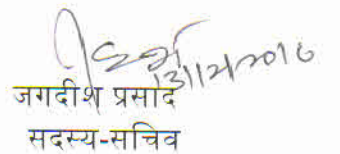 13/12/2016
जगदीश प्रसाद
सदस्य-सचिव